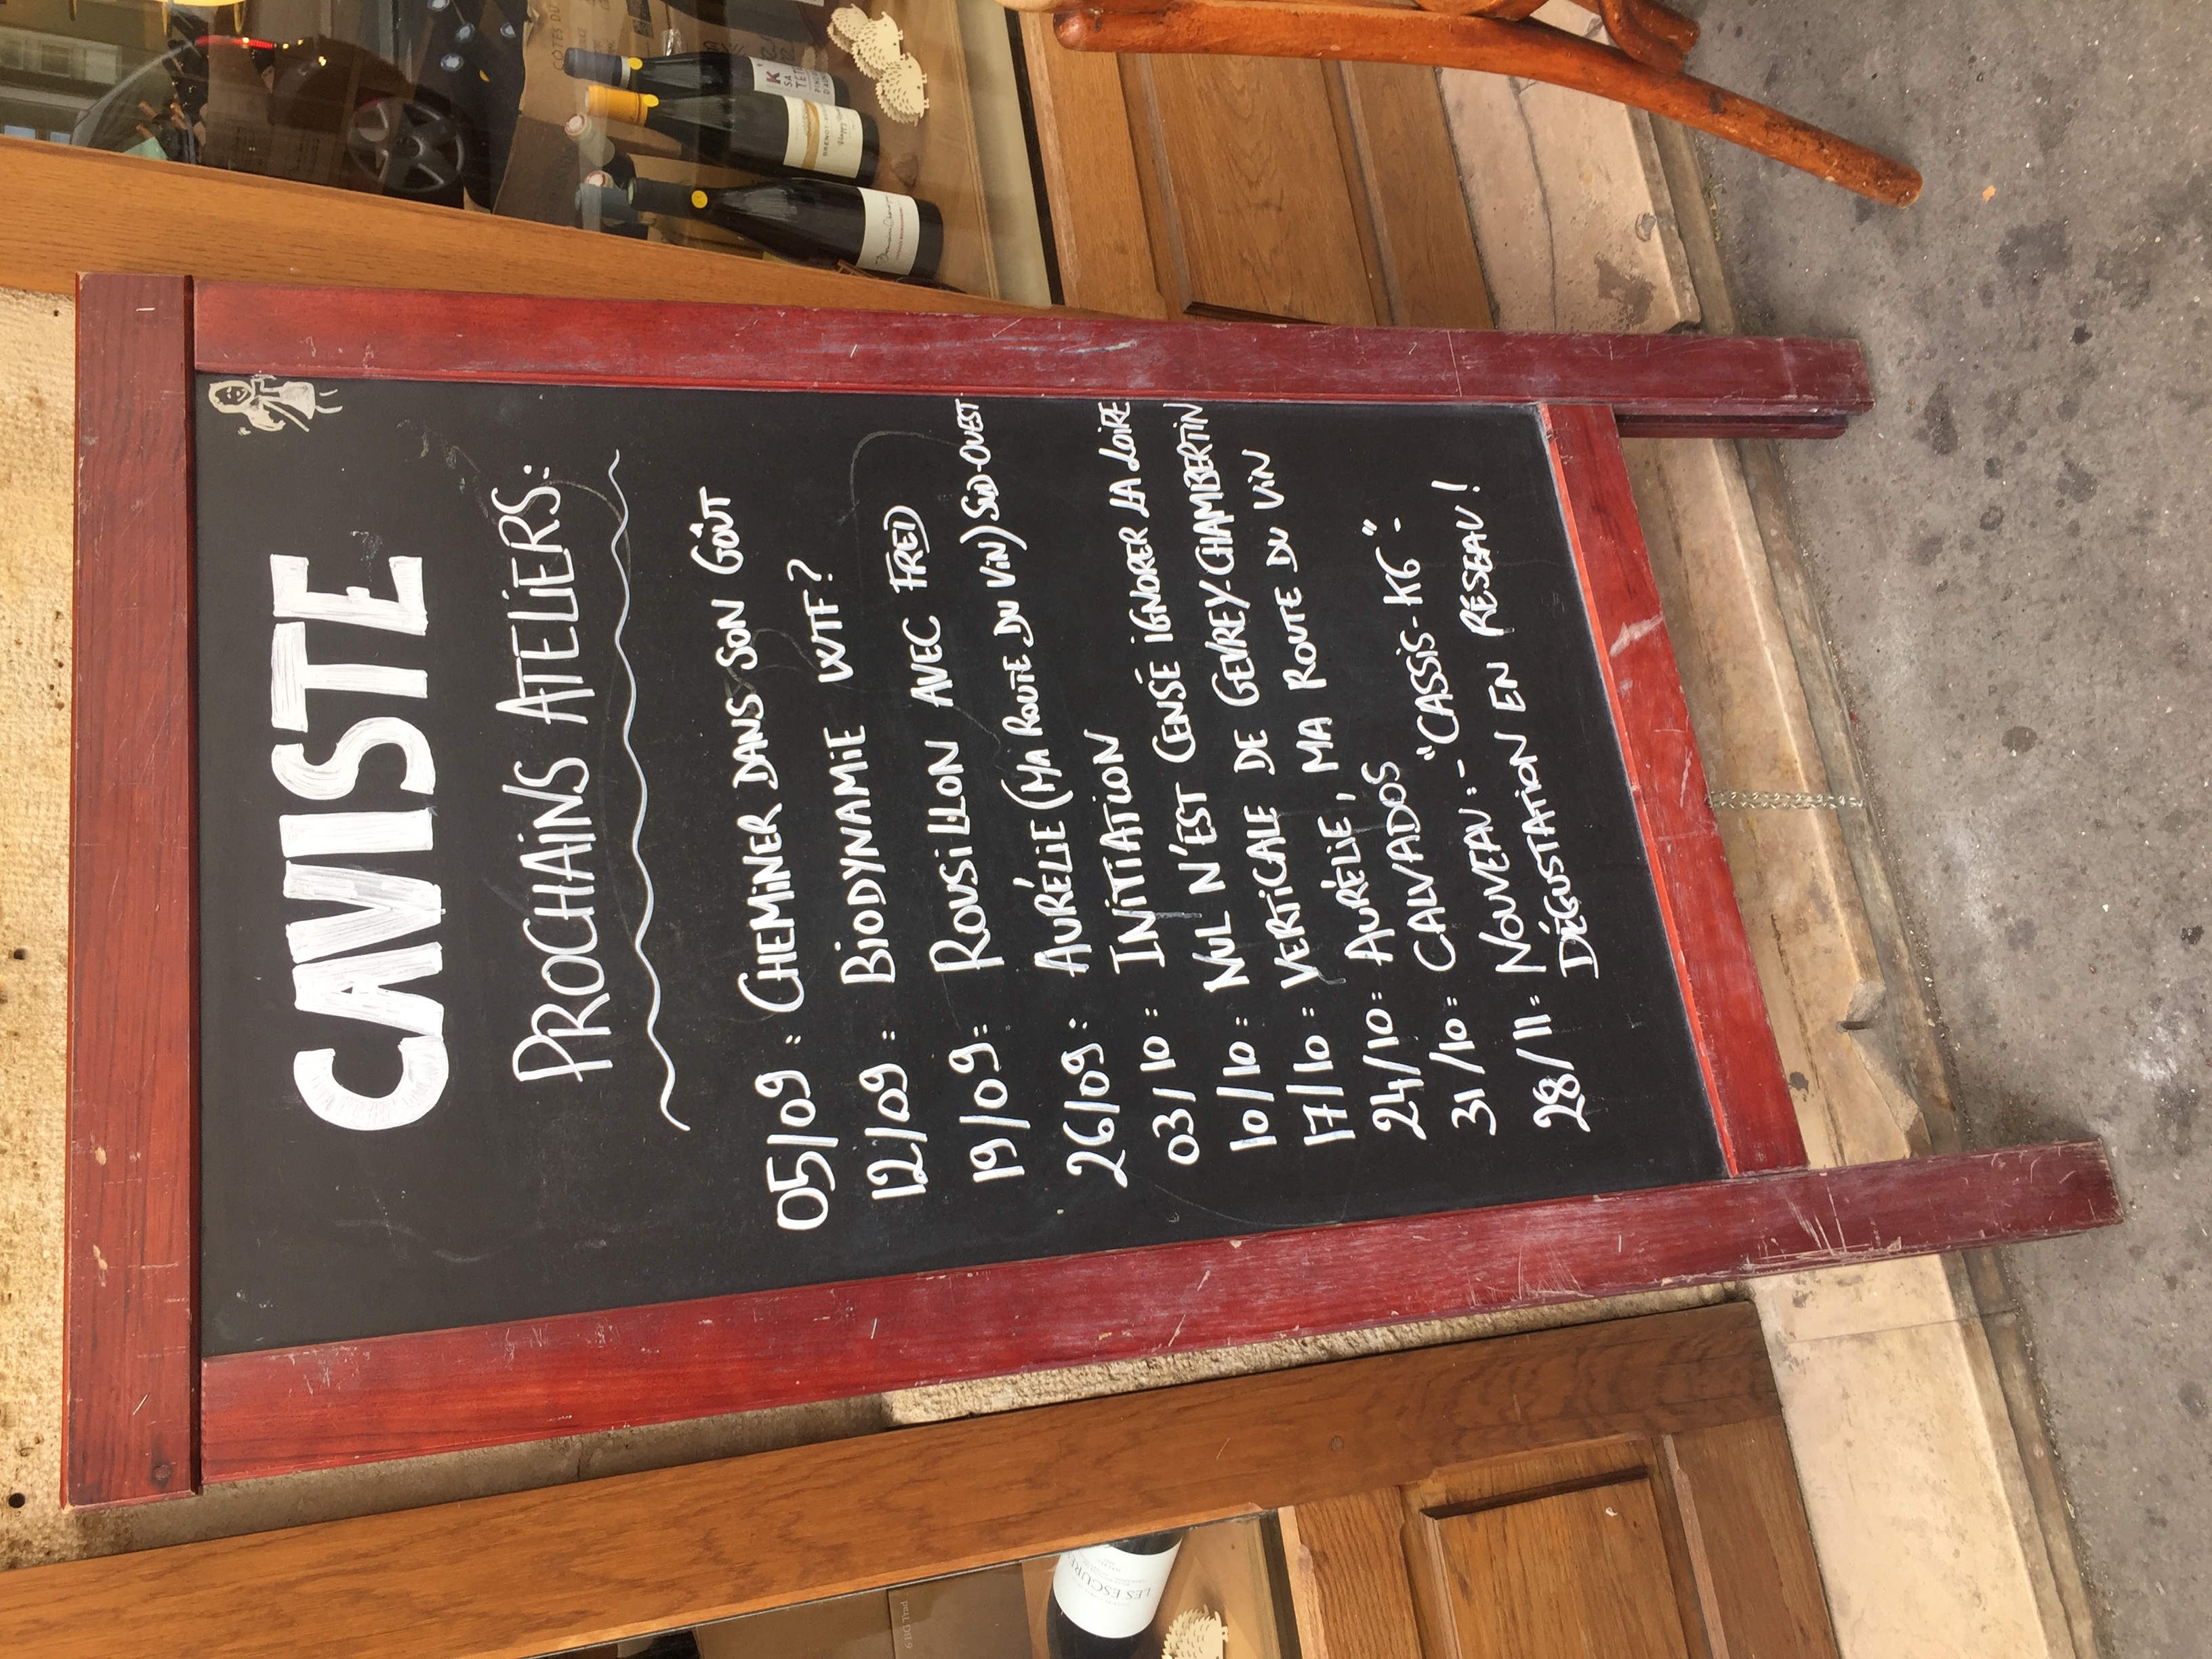 CAVISTE
PROCHAINS ATELIERS:
05/09 : CHEMINER DANS SON GOÛT
12/09 : BIODYNAMIE WTF?
19/09 : ROUSILLON AVEC FRED
26/09 : AURÉLIE (MA ROUTE DU VIN) SUD-OUEST
03/10 : INITIATION
10/10 : NUL N'EST CENSÉ IGNORER LA LOIRE
17/10 : VERTICALE DE GEVREY-CHAMBERTIN
24/10 : AURÉLIE, MA ROUTE DU VIN
31/10 : CALVADOS
28/11 : NOUVEAU :- "CASSIS-KG" :
DÉGUSTATION EN RÉSEAU!
K'
SA
TE
LES ESCURES
6 BG Trad
CÔTES DU